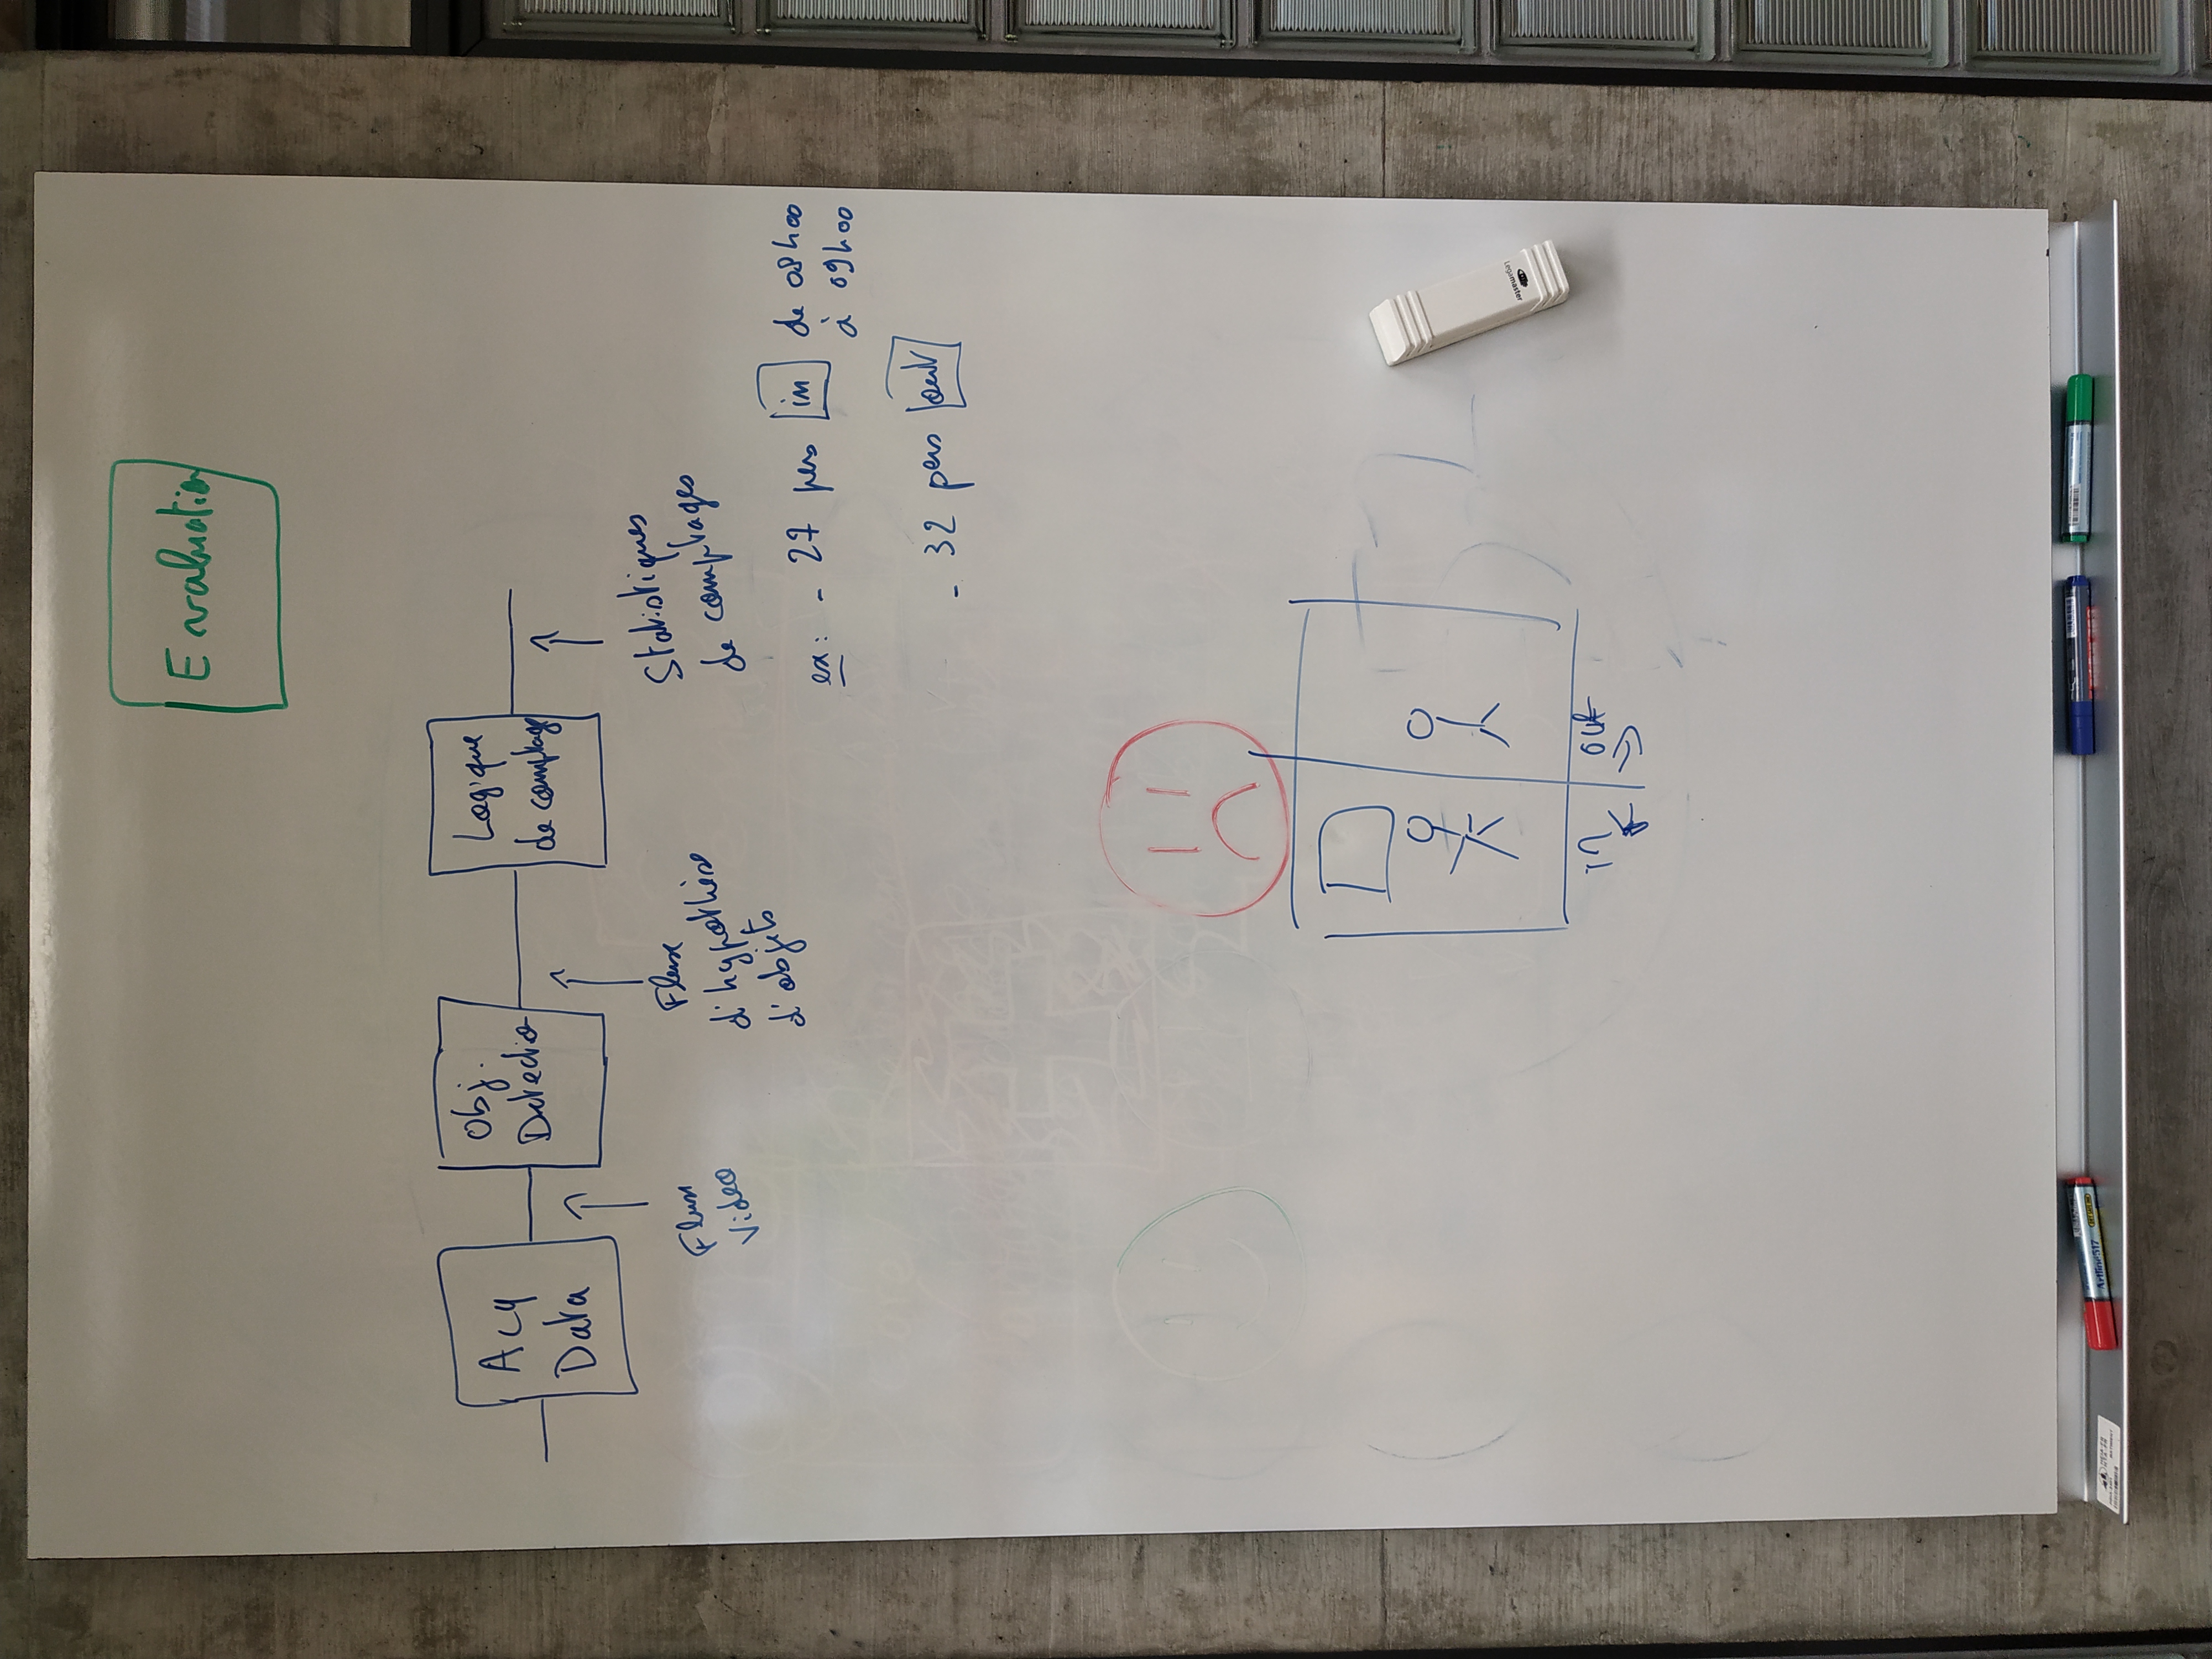 Evaluation
Acq
Data
Obj.
Detection
Logique
de comptage
Flux
Video
Flux
d'hypothèse
d'objets
Statistiques
de comptages
ex: - 27 pers in de 08h00
à 09h00
- 32 pers out
in
out
Legamaster
Artline 517